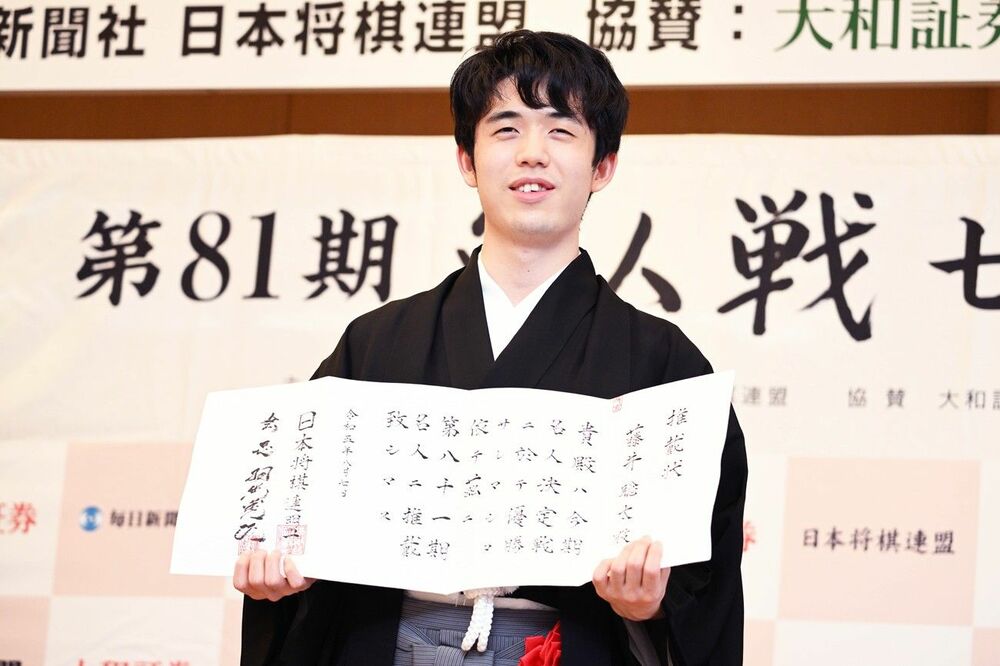 新聞社 日本将棋連盟 協賛：大和証券
第81期 名人戦 七
連盟 協賛 大和証
推戴状
藤井聡太殿
貴殿ハ今期
名人決定戦
ニ於テ優勝
サレマシタ
依テ茲ニ
第八十一期
名人ニ推戴
致シマス
令和五年八月七日
日本将棋連盟
会長
証券
毎日新聞
日本将棋連盟
大和証券